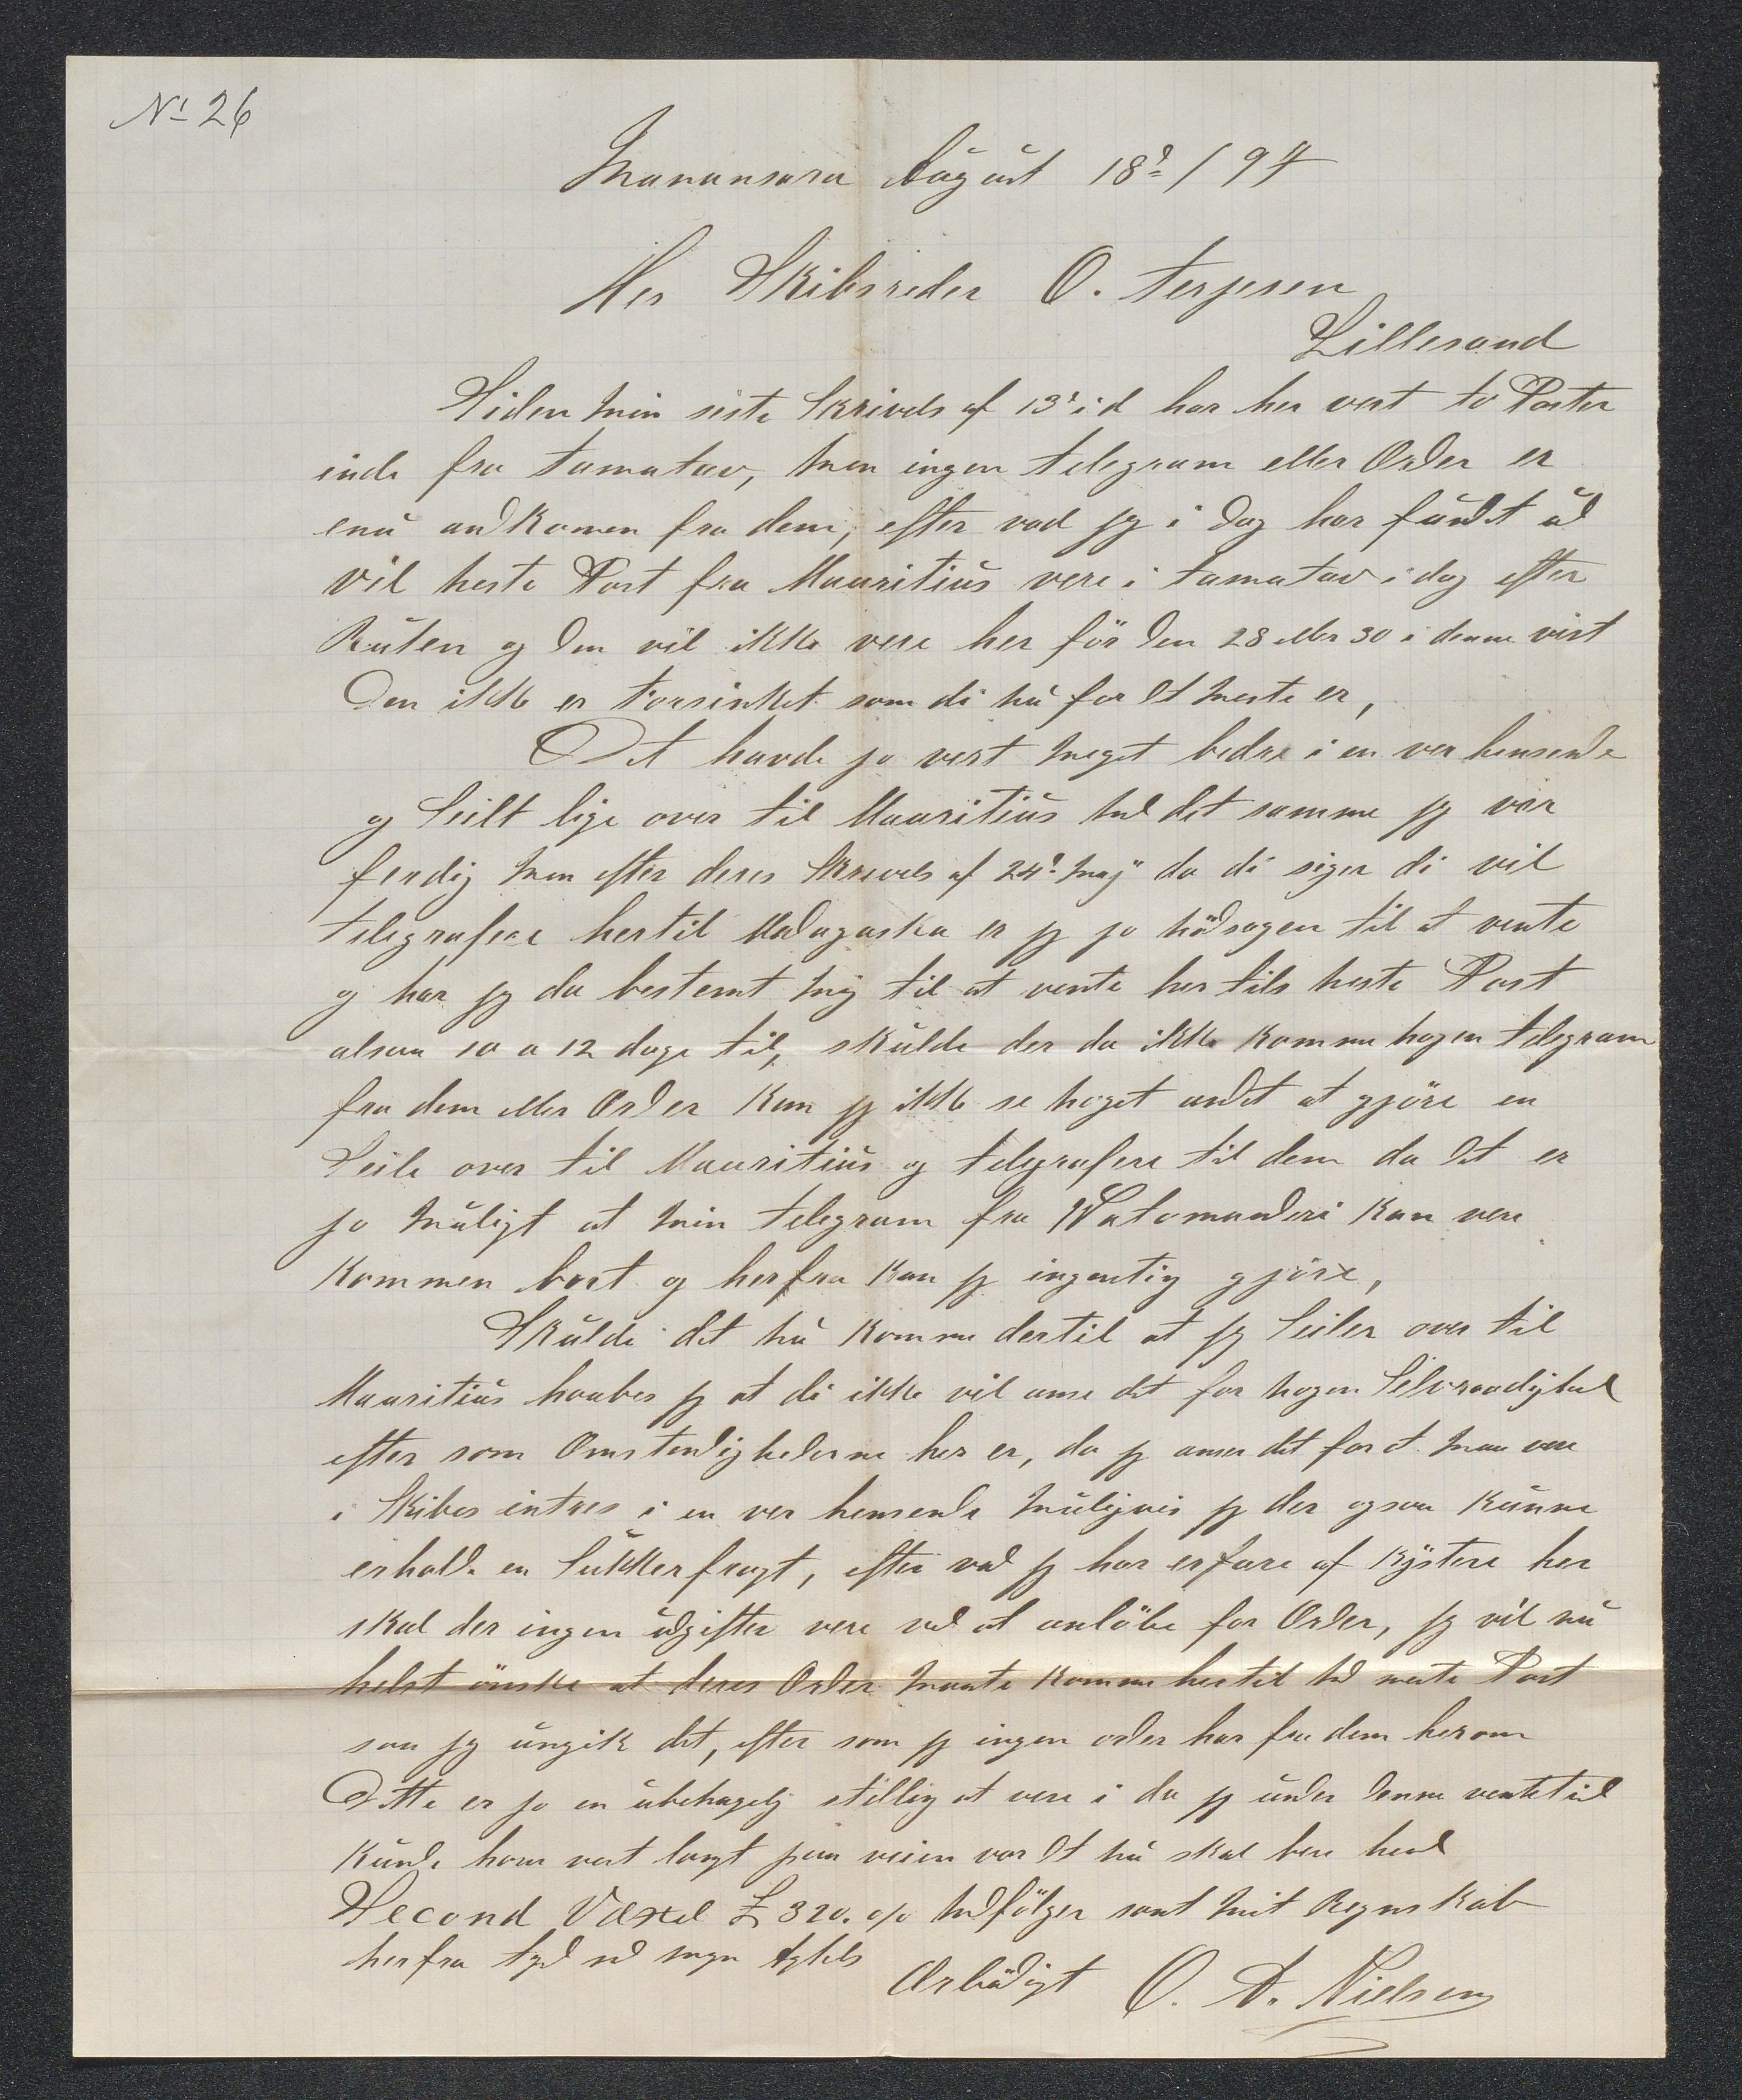 No 26
Manansara August 18d / 94
Her Skibsreder O. Terjesen
Lillesand
Siden min siste Skrivels af 13d i d har her vert to Poster
inde fra tamatav, men ingen telegram eller Order er
enu andkomen fra dem, efter vad jg i dag har fundet ud
vil neste Post fra Mauritius vere i tamatav i dag efter
Ruten og den vil ikke vere her för den 28 eller 30 i denne vist
Den ikke er forsinket som di nu for det meste er,
Det havde jo vert meget bedre i en ver hensende
og Seilt lige over til Mauritius med det samme jg var
ferdig men efter deres Skrivels af 24d Maj da di siger di vil
telegrafere hertil Madagaska er jg jo nödsagen til at vente
og har jg da bestemt mig til at vente her tils neste Post
alsaa 10 a 12 dage til, skulde der da ikke komme nogen telegram
fra dem eller Order kan jg ikke se noget andet at gjöre en
Seile over til Mauritius og telegrafere til dem da det er
jo muligt at min telegram fra Watomanderi kan vere
kommen bort og herfra kan jg ingenting gjöre,
Skulde det nu komme dertil at jg Seiler over til
Mauritius haabes jg at di ikke vil anse det for nogen Selvraadighed
efter som Omstendighederne her er, da jg anser det for at maa vere
i Skibes intres i en ver hensende muligvis jg der ogsaa kunne
erholde en Sukkerfragt, efter vad jg har erfare af kystere her
skal der ingen udgifter vere ved at anlöbe for Order, jg vil nu
helst önske at deres Order maate komme hertil med neste Post
saa jg ungik det, efter som jg ingen order har fra dem herom
Dette er jo en ubehagelig stilling at vere i da jg under denne ventetid
kunde have vert langt paa veien vor det nu skal bere hend
Second Vexel £ 320. o/o medfölger samt mit Regnskab
herfra
Ærbödigt O. A. Nielsen